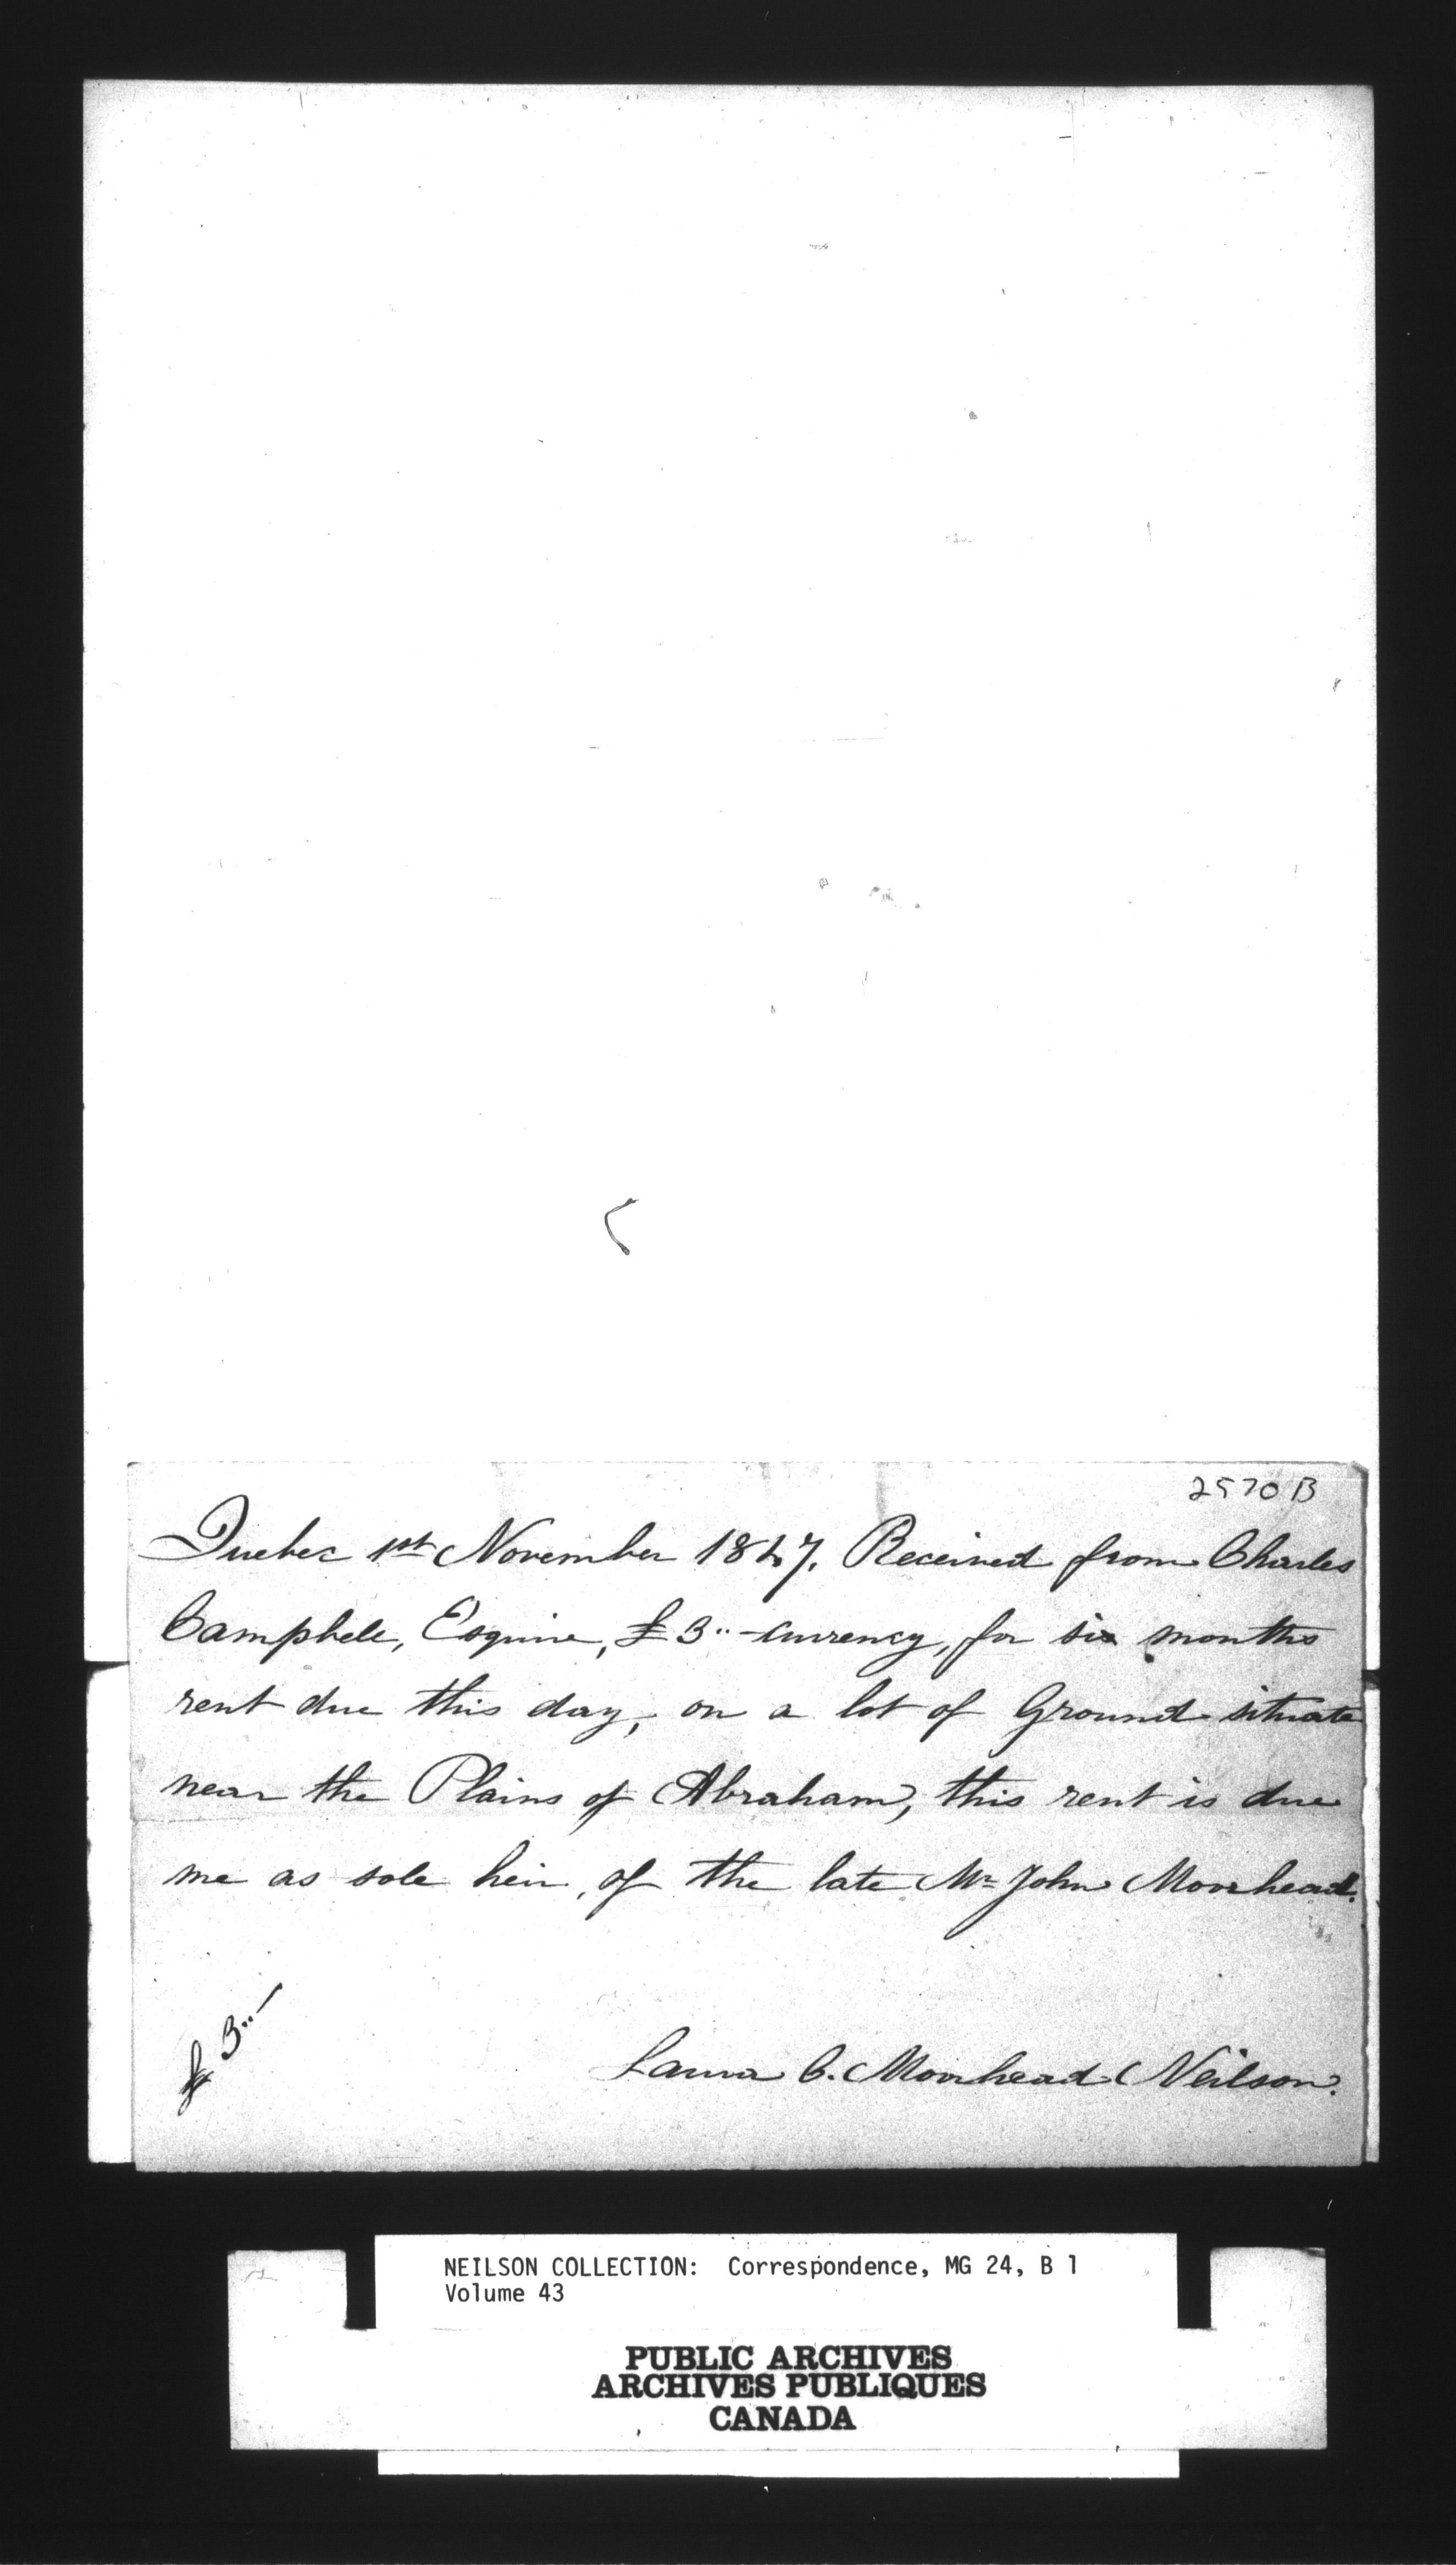 2570 B
Quebec 1st November 1847. Received from Charles
Campbell, Esquire, £3..- currency, for six months
rent due this day, on a lot of Ground situate
near the Plains of Abraham, this rent is due
me as sole heir, of the late Mr John Moorhead.
£3../
Laura C. Moorhead Neilson.
NEILSON COLLECTION: Correspondence, MG 24, B 1
Volume 43
PUBLIC ARCHIVES
ARCHIVES PUBLIQUES
CANADA